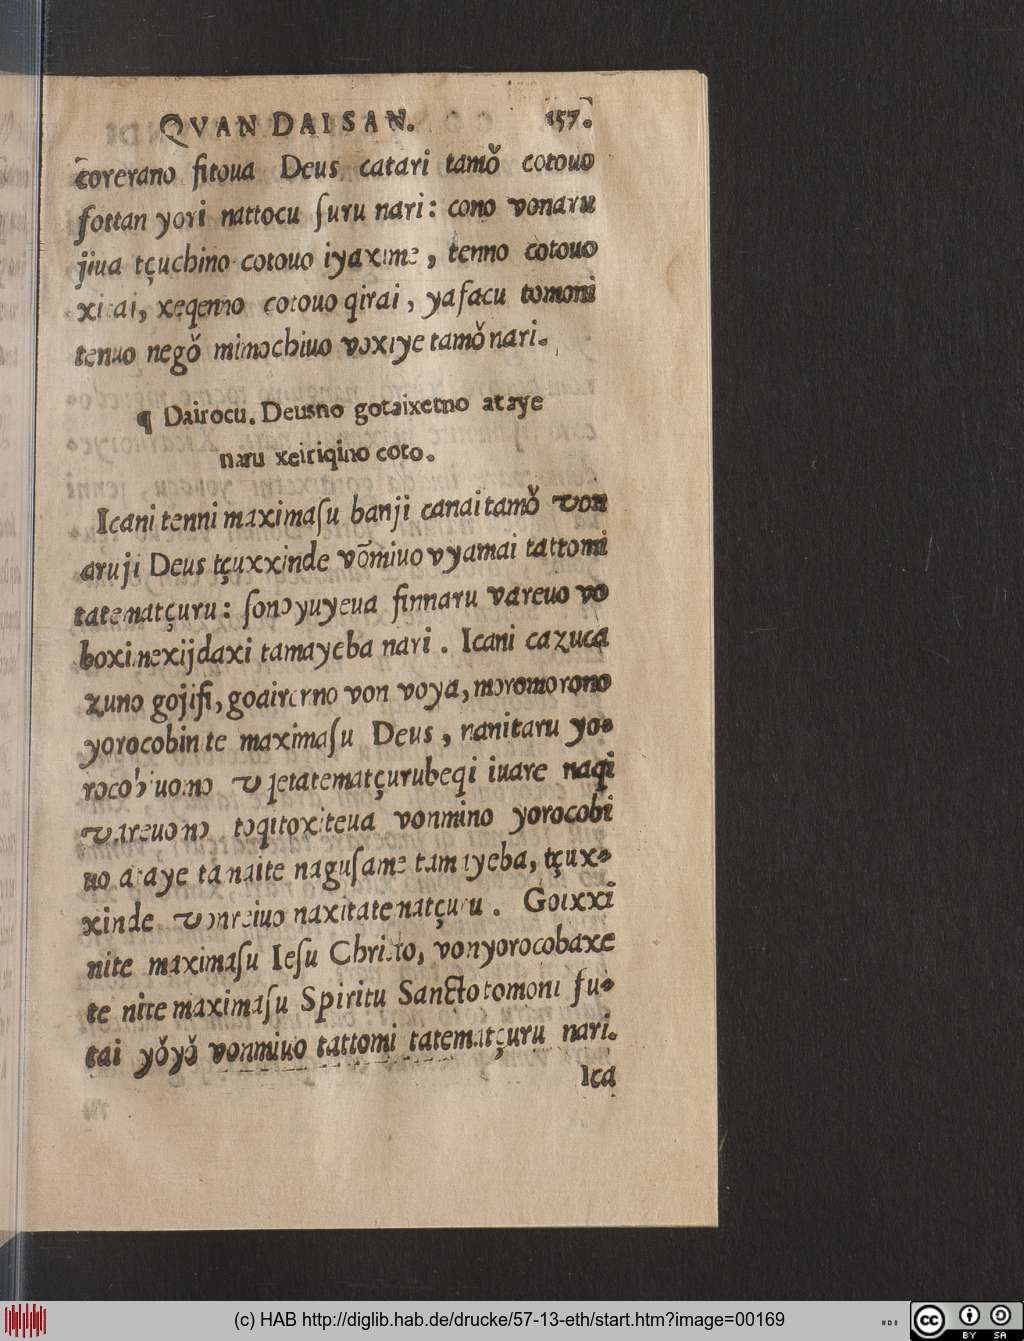 QVAN DAI SAN. 157.
corerano fitoua Deus catari tamǒ cotouo
ſottan yori nattocu ſuru nari: cono vonaru
jiua tçuchino cotouo iyaxime, tenno cotouo
xitai, xeqenno cotouo qirai, yaſacu tomoni
tenuo negǒ mimochiuo voxiye tamǒ nari.
¶ Dairocu. Deusno gotaixetno ataye
naru xeiriqino coto.
Icani tenni maximaſu banji canai tamǒ von
aruji Deus tçuxxinde vōmiuo vyamai tattomi
tatematçuru: ſono yuyeua finnaru vareuo vo
boximexijdaxi tamayeba nari. Icani cazuca
zuno gojifi, goairerno von voya, moromorono
yorocobinte maximaſu Deus, nanitaru yo⸗
rocobiuomo vqetatematçurubeqi iuare naqi
vareuomo toqitoxiteua vonmino yorocobi
uo ataye tanaite naguſame tamayeba, tçux⸗
xinde vonreiuo naxitatematçuru. Goixxi
nite maximaſu Ieſu Chriſto, vonyorocobaxe
te nite maximaſu Spiritu Sancto tomoni fu⸗
tai yǒyǒ vonmiuo tattomi tatematçuru nari.
Ica
(c) HAB http://diglib.hab.de/drucke/57-13-eth/start.htm?image=00169
cc BY SA